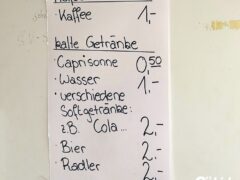 Kaffee 1,-
kalte Getränke
• Caprisonne 0,50
• Wasser 1,-
• verschiedene
Softgetränke:
z.B. Cola... 2,-
• Bier 2,-
• Radler 2,-